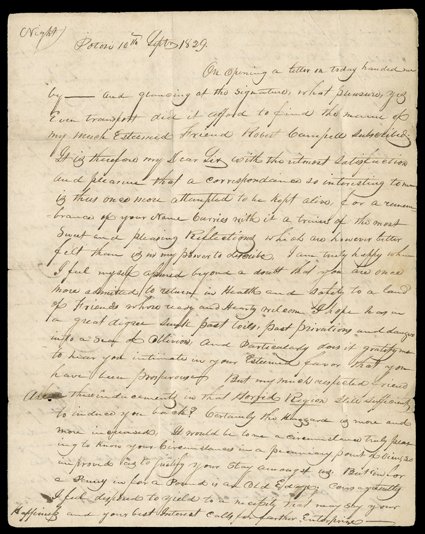 (Night)
Potosi 10th Septr 1829.
On Opening a letter on today handed me
by — and glancing at the Signature, what pleasure, yes
Even transport did it afford to find the name of
my much Esteemed Friend Robert Campell Subscribed
It is therefore my Dear Sir with the utmost Satisfaction
and pleasure that a correspondance so interesting to me
is thus once more attempted to be kept alive, for a remem
brance of your Name Carries with it a train of the most
Sweet and pleasing Recollections, which are however better
felt than is in my power to describe I am truly happy when
I feel myself assured beyond a doubt that you are once
more admitted to return in Health and Safety to a land
of Friends whose ready and Hearty welcome I hope has in
a great degree Sunk past toils, past privations and danger
into a Sea of Oblivion. And Particularly does it gratify me
to hear you intimate in your Esteemed favor that you
have been prosperous But my much respected friend
Are these inducements in that Horrid Region Still Sufficient
to induce you back? Certainly the Hazzard is more and
more increased. It would be to me a circumstance truly pleas
ing to know your Circumstances in a pecuniary point of view, so
improved as to justify your Stay amongst us But in for
a Penny in for a Pound is an Old Adage Consequently
I feel disposed to yield to a necessity that may by your
Happiness and your best Interest Calls for further Enterprise —